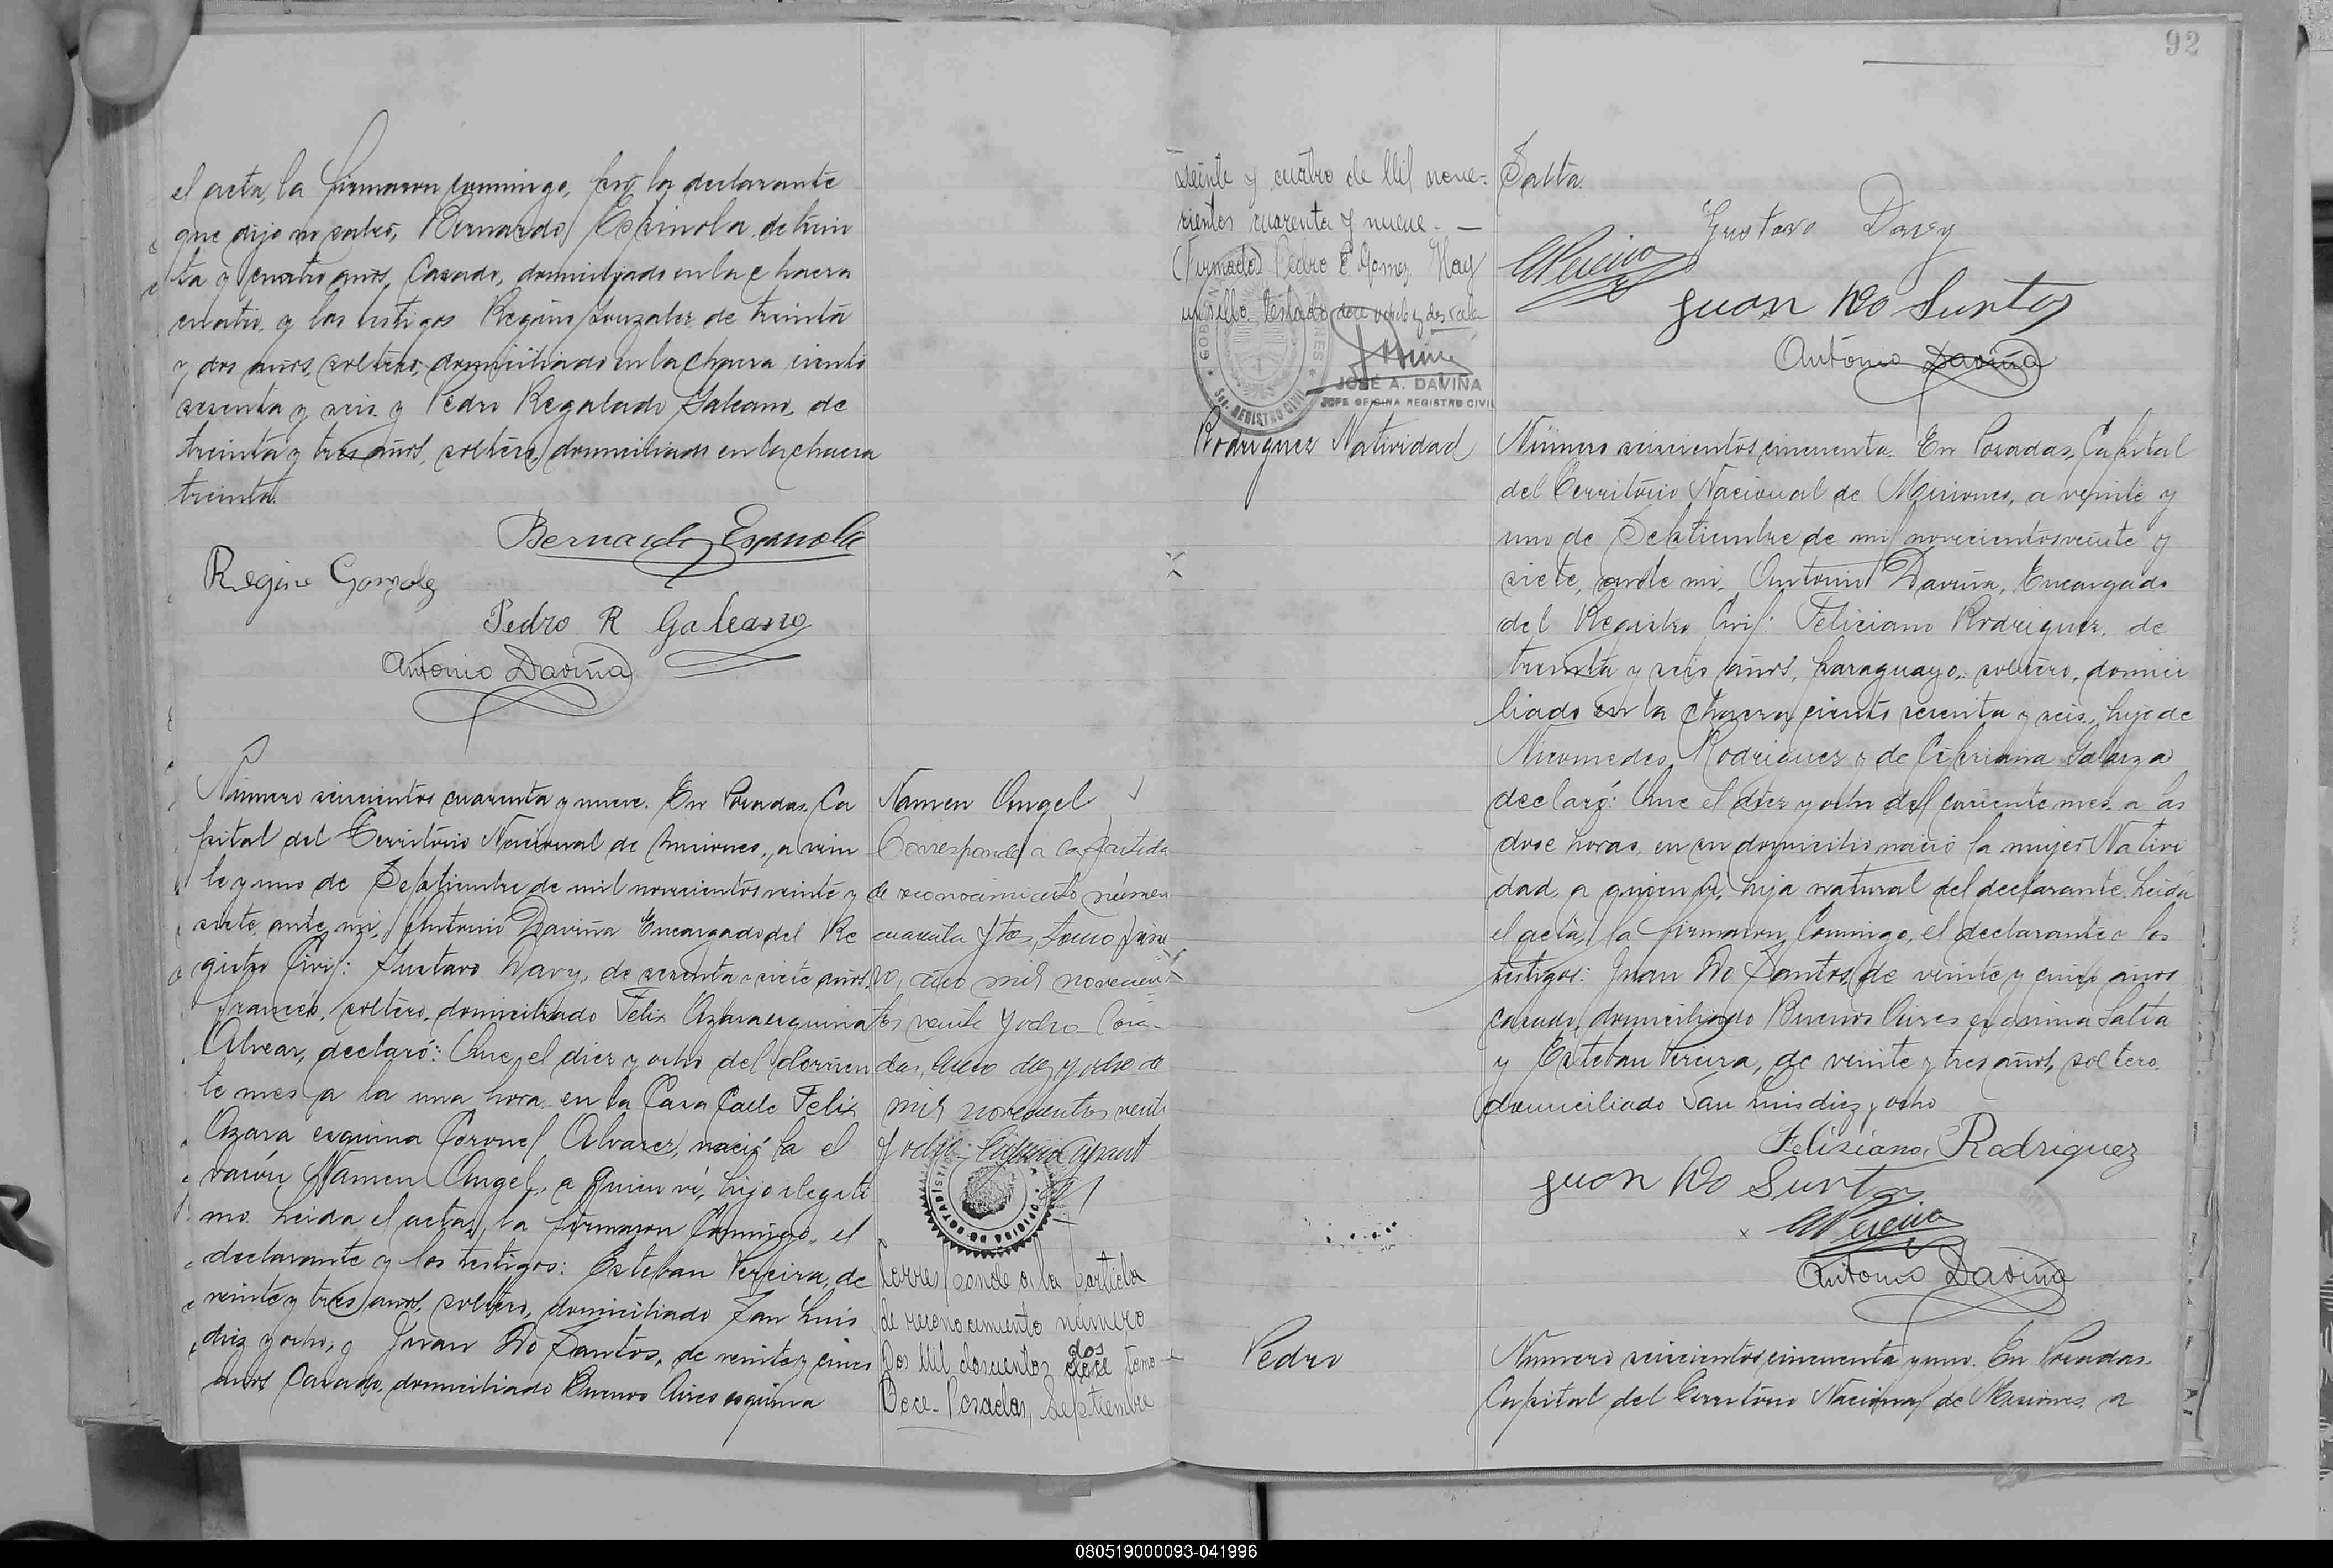 el acta, la firmaron conmigo, por la declarante
que dijo no saber, Bernardo Espinola de trein
ta y cuatro años, Casado, domiciliado en la chacra
cuatro, y los testigos Regino Gonzalez de treinta
y dos años, soltero, domiciliado en la chacra ciento
sesenta y seis y Pedro Regalado Galeano, de
treinta y tres años, soltero, domiciliado en la chacra
treinta.
Bernardo Espinola
Regino Gonzalez
Pedro R Galeano
Antonio Daviña
Número seiscientos cuarenta y nueve. En Posadas, Ca
pital del Territorio Nacional de Misiones, a vein
te y uno de Septiembre de mil novecientos veinte y
siete, ante mi, Antonio Daviña Encargado del Re
gistro Civil: Gustavo Davy, de sesenta y siete años,
francés, soltero, domiciliado Felix Azara esquina
Alvear, declaró: Que el diez y ocho del corrien
te mes a la una hora en la Casa Calle Felix
Azara esquina Coronel Alvarez, nació la el
varón Namen Angel, a quien vi, hijo ilegiti
mo. Leida el acta, la firmaron Conmigo, el
declarante y los testigos: Esteban Pereira, de
veinte y tres años, soltero, domiciliado San Luis
diez y ocho, y Juan Do Santos, de veinte y cinco
años Casado, domiciliado Buenos Aires esquina
Namen Angel
Corresponde a la partida
de reconocimiento número
cuarenta y tres, tomo prime
ro, año mil novecien
tos veinte y ocho - Posa-
das, Enero diez y ocho de
mil novecientos veinte
y ocho -
Corresponde a la partida
de reconocimiento número
Dos Mil doscientos doce tomo
dos
Doce - Posadas, Septiembre
92
veinte y cuatro de Mil nove-
cientos cuarenta y nueve. -
(Firmado) Pedro E. Gomez Hay
un sello. testado doce
JOSÉ A. DAVIÑA
JEFE OFICINA REGISTRO CIVIL
Salta.
Gustavo Davy
EPereira
Juan Do Santos
Antonio Daviña
Rodriguez Natividad
Número seiscientos cincuenta. En Posadas, Capital
del Territorio Nacional de Misiones, a veinte y
uno de Septiembre de mil novecientos veinte y
siete, ante mi, Antonio Daviña, Encargado
del Registro Civil: Feliciano Rodriguez, de
treinta y seis años, paraguayo, soltero, domici
liado en la chacra ciento sesenta y seis, hijo de
Nicomedes Rodriguez y de Cipriana Galarza
declaró: Que el diez y ocho del corriente mes a las
doce horas, en su domicilio nació la mujer Nativi
dad, a quien vi, hija natural del declarante. Leida
el acta, la firmaron Conmigo, el declarante y los
testigos: Juan Do Santos, de veinte y cinco años
casado, domiciliado Buenos Aires esquina Salta
y Esteban Pereira, de veinte y tres años, soltero,
domiciliado San Luis diez y ocho
Felisiano Rodriguez
Juan Do Santos
EPereira
Antonio Daviña
Pedro
Número seiscientos cincuenta y uno. En Posadas,
Capital del Territorio Nacional de Misiones, a
080519000093-041996